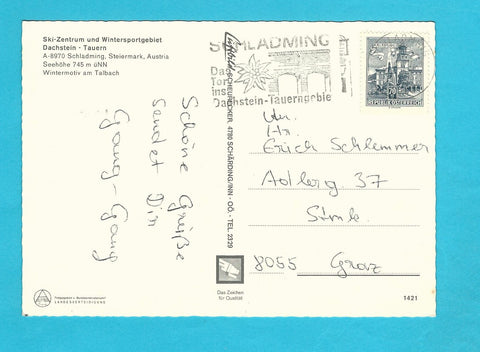 Ski-Zentrum und Wintersportgebiet
Dachstein - Tauern
A-8970 Schladming, Steiermark, Austria
Seehöhe 745 m üNN
Wintermotiv am Talbach
Schöne Grüße
sendet Dir
SCHLADMING
Das
Tor
ins
Dachstein-Tauerngebie
REPUBLIK ÖSTERREICH
4780 SCHÄRDING/INN - OÖ. - TEL. 2329
Hr.
Erich Schlemmer
37
8055 Graz
Das Zeichen
für Qualität
LANDESVERTEIDIGUNG
1421